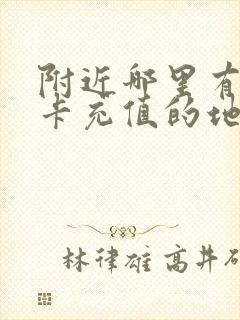 附近哪里有
卡充值的地
林律雄高井研